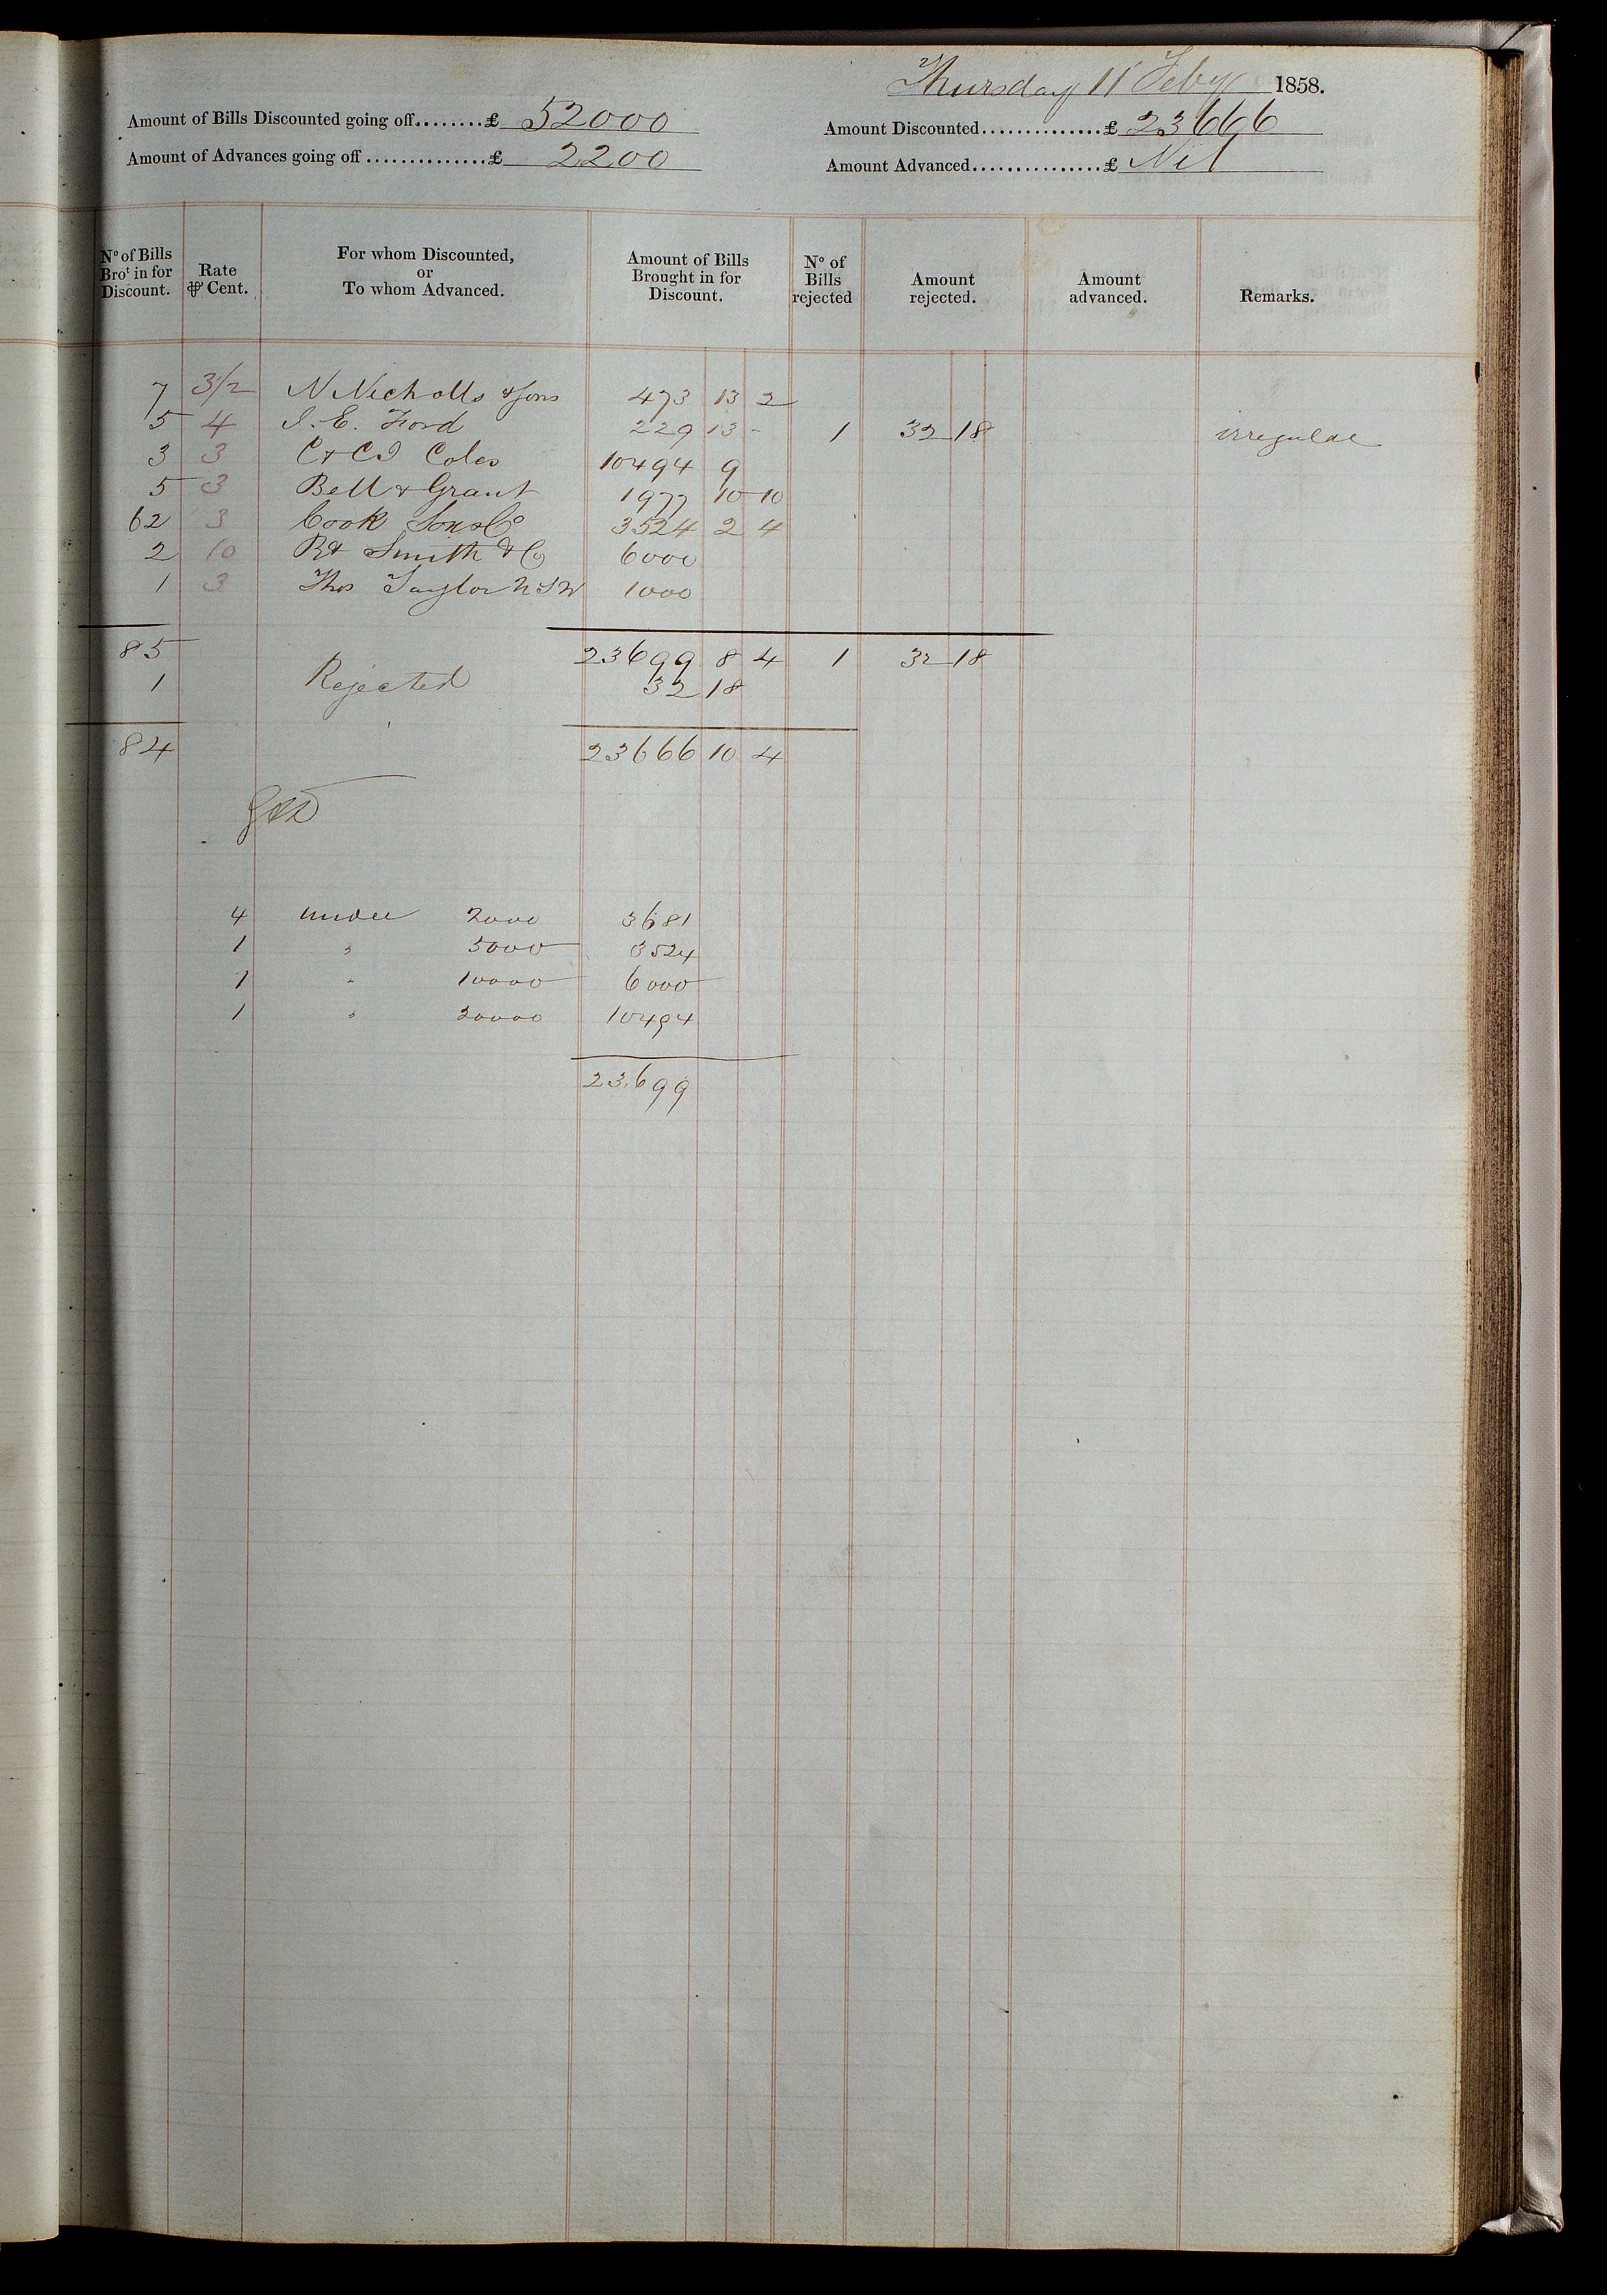 Thursday 11 Feby 1858.
Amount of Bills Discounted going off........£ 52000
Amount Discounted..............£ 23666
Amount of Advances going off...............£ 2200
Amount Advanced................£ Nil
No of Bills Brot in for Discount. Rate ⅌ Cent. For whom Discounted, or To whom Advanced. Amount of Bills Brought in for Discount. No of Bills rejected Amount rejected. Amount advanced. Remarks.
7 3/2 N Nicholls & Sons 473 13 2
5 4 I. E. Ford 229 13 - 1 32 18 irregular
3 3 C & C I Coles 10494 9
5 3 Bell & Grant 1977 10 10
62 3 Cook Sons & Co 3524 2 4
2 10 Smith & Co 6000
1 3 Thos Taylor 1000
85 23699 8 4 1 32 18
1 Rejected 32 18
84 23666 10 4
4 under 2000 3681
1 " 5000 3524
1 " 10000 6000
1 " 20000 10494
23.699